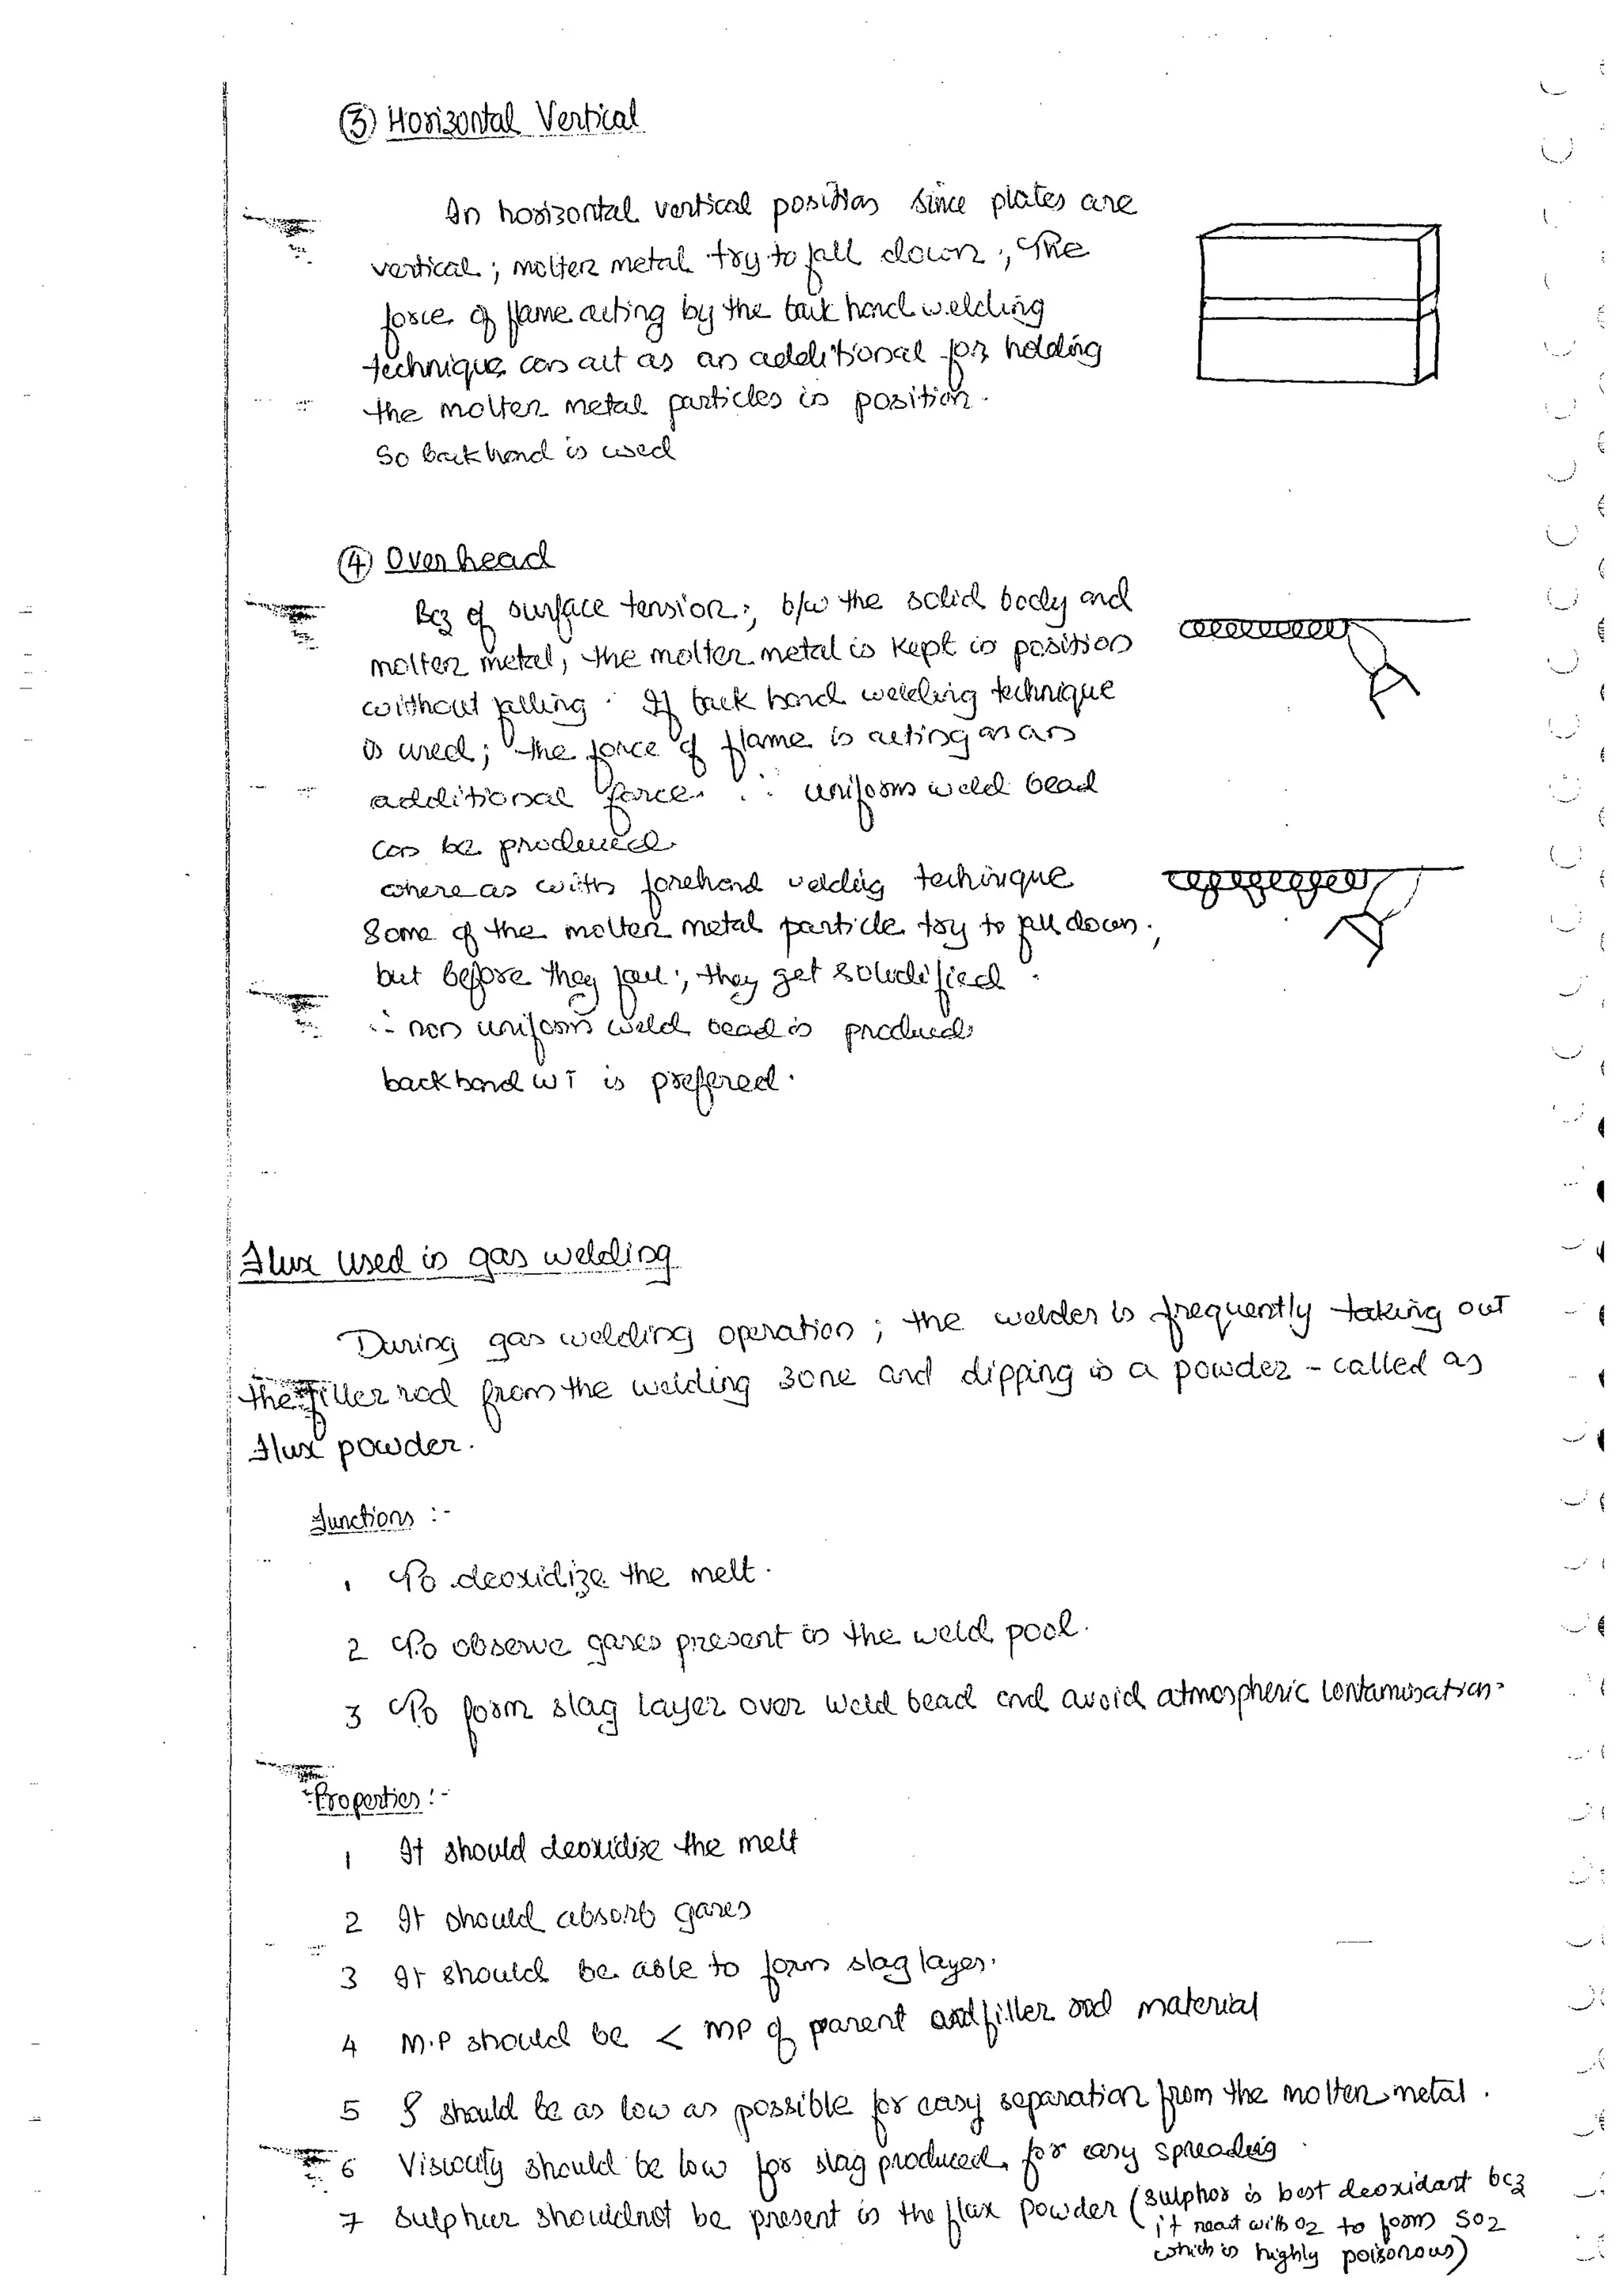 ③ Horizontal Vertical
In horizontal vertical position since plates are
vertical ; molten metal try to fall down ; The
force of flame acting by the back hand welding
technique can act as an additional for holding
the molten metal particles in position.
So back hand is used
④ Over head
Bcz of surface tension ; b/w the solid body and
molten metal, the molten metal is kept in position
without falling . If back hand welding technique
is used ; the force of flame is acting as an
additional force. ∴ uniform weld bead
can be produced.
where as with forehand welding techinique
Some of the molten metal particle try to fall down.,
but before they fall ; they get solidified .
∴ non uniform weld bead is produced
back hand WT is prefered.
Flux used in gas welding
During gas welding operation ; the welder is frequently taking out
the filler rod from the welding zone and dipping in a powder - called as
flux powder.
Functions :-
1 To deoxidize the melt.
2 To observe gases present in the weld pool.
3 To form slag layer over weld bead and avoid atmospheric contamination.
Properties :-
1 It should deoxidise the melt
2 It should absorb gases
3 It should be able to form slag layer.
4 M.P should be < MP of parent and filler rod material
5 ρ should be as low as possible for easy separation from the molten metal .
6 Viscocity should be low for slag produced, for easy spreading .
7 Sulphur shouldnot be present in the flux powder (sulphor is best deoxidant bcz
it react with O2 to form SO2
which is highly poisonous)